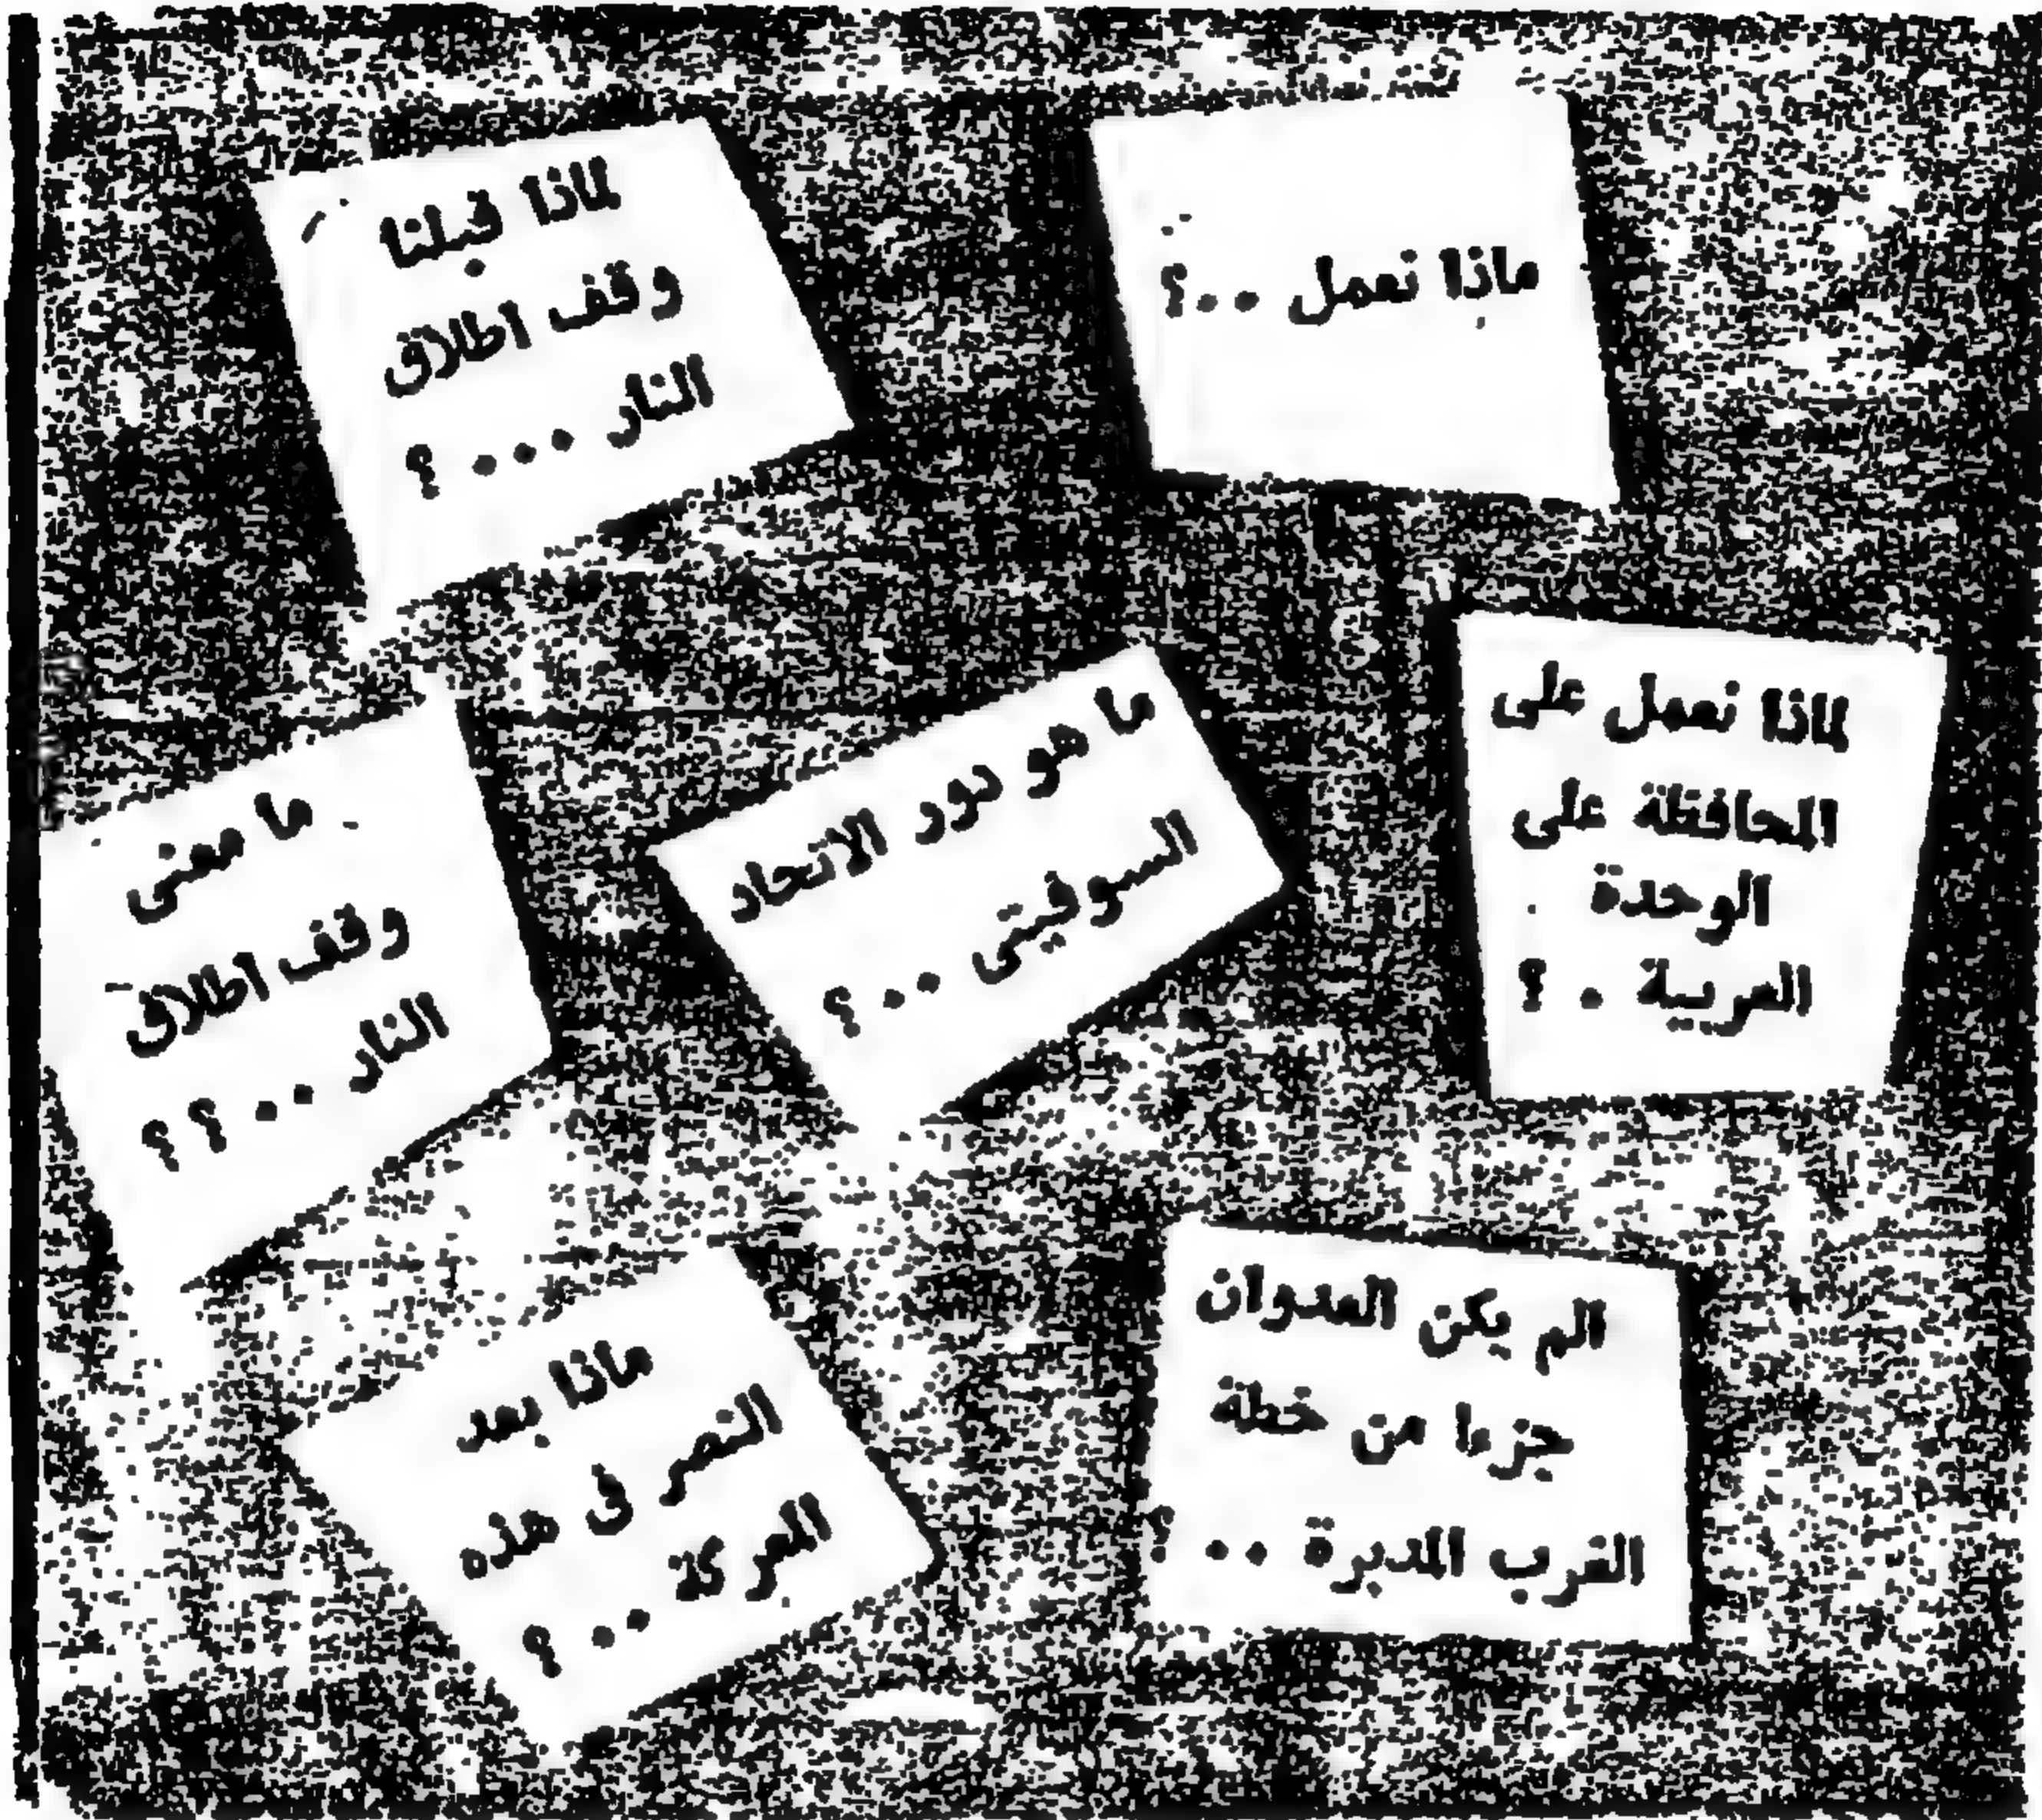 ماذا نعمل ..؟
لماذا قبلنا
وقف اطلاق
النار ... ؟
لماذا نعمل على
المحافظة على
الوحدة
العربية . ؟
ما هو دور الاتحاد
السوفيتى .. ؟
ما معنى
وقف اطلاق
النار .. ؟ ؟
الم يكن العدوان
جزءا من خطة
الغرب المدبرة .. ؟
ماذا بعد
النصر فى هذه
المعركة .. ؟